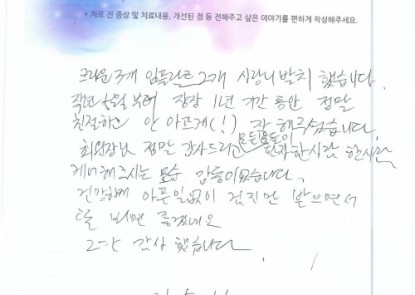 * 치료 전 증상 및 치료내용, 개선된 점 등 전해주고 싶은 이야기를 편하게 작성해주세요.
크라운 3개 임플란트 2개 사랑니 발치 했습니다.
작년 부터 장장 1년 기간 동안 정말
친절하고 안 아프게(!) 잘 해주셨습니다.
정말 감사드리고 모든분들이 한사람 한사람
케어해주시는 모습 감동이었습니다.
건강하게 아픈일없이 검진만 받으면서
뵈면 좋겠네요
감사 했습니다